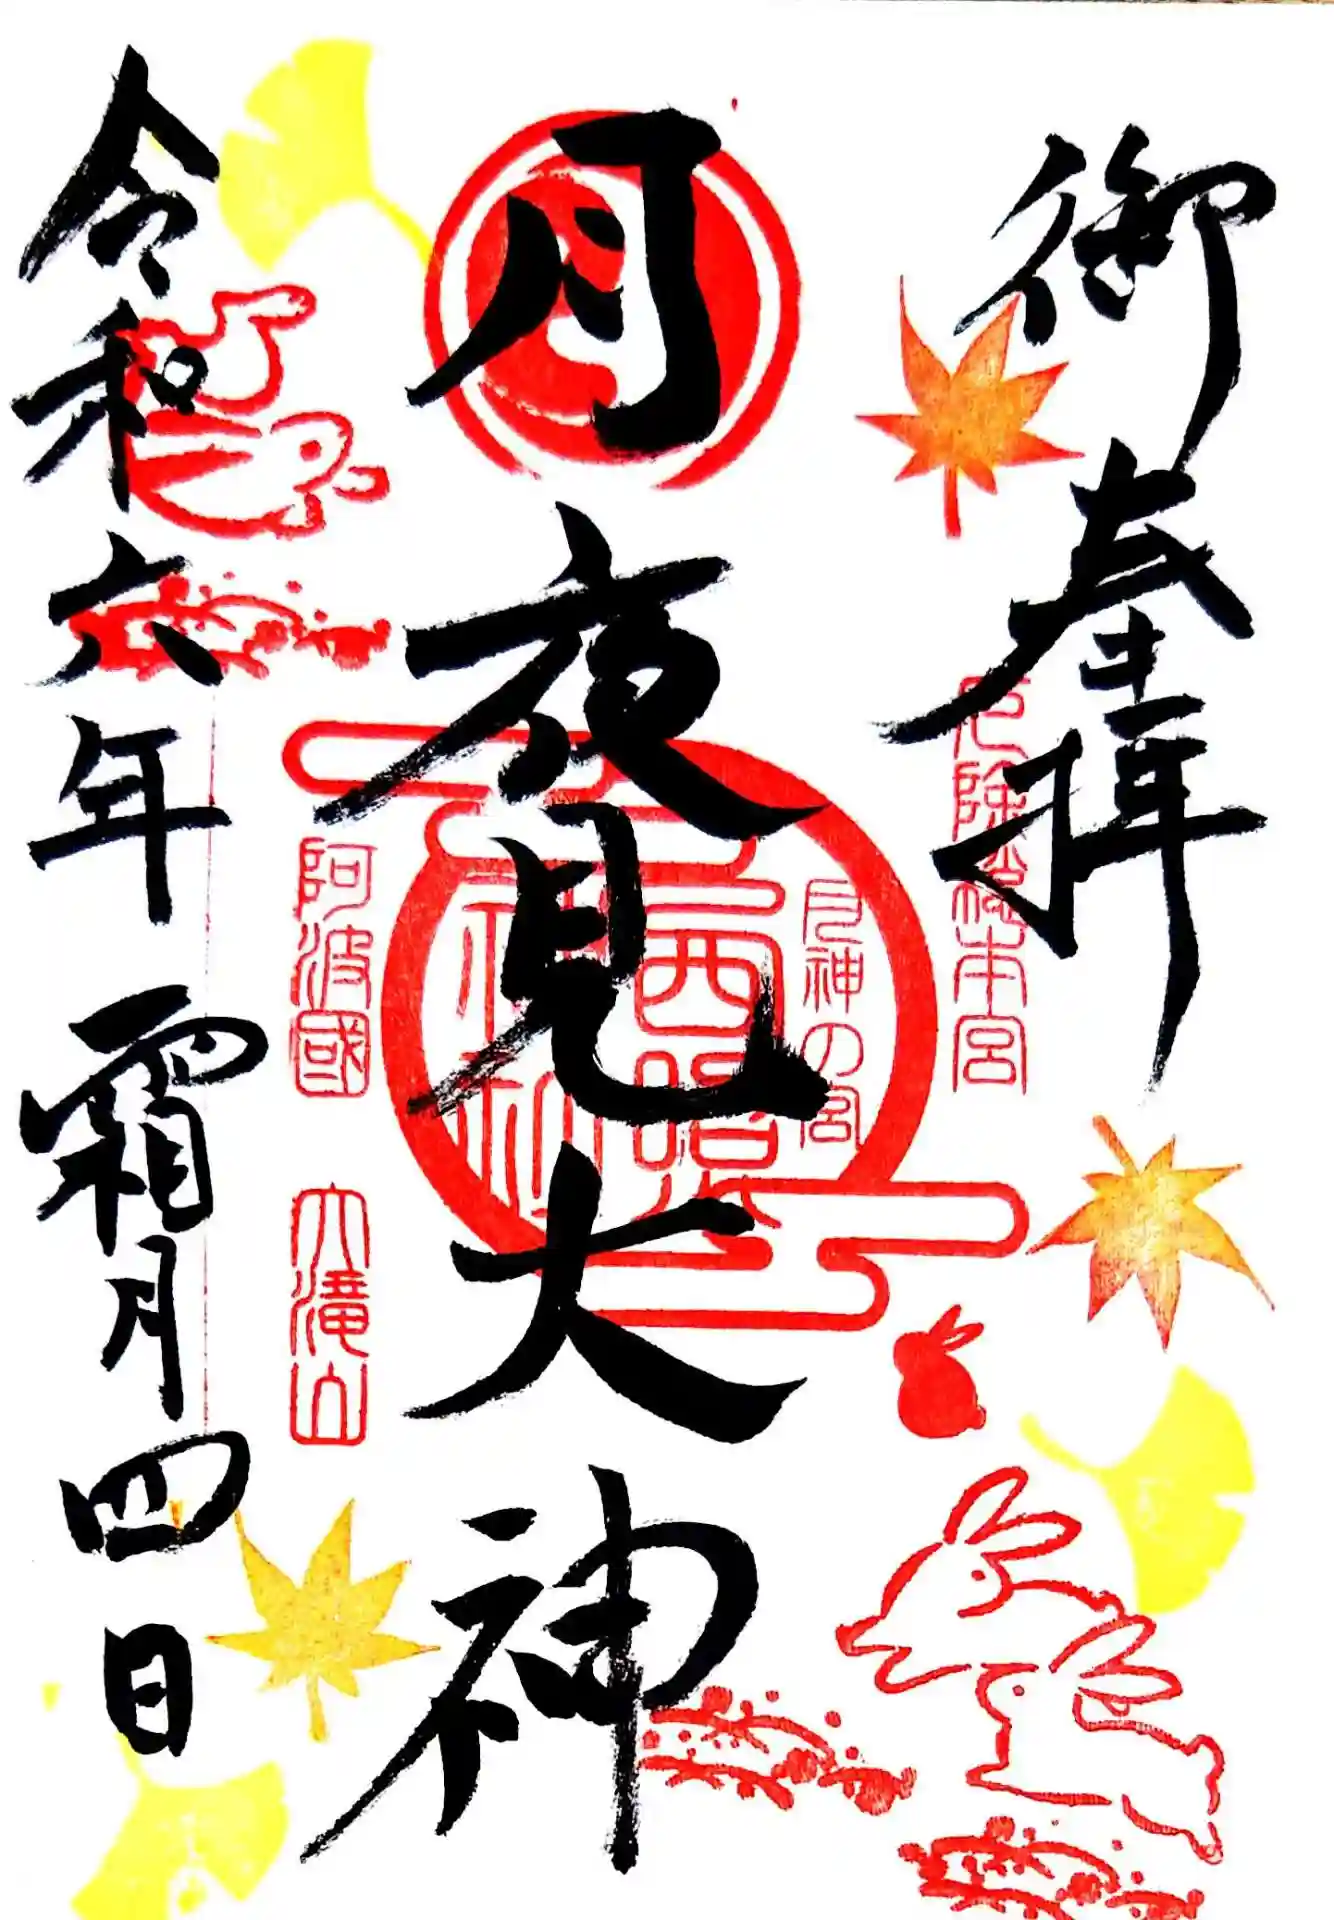 御奉拝
厄除總本宮
月夜見大神
月神の宮
西照神社
阿波國
大滝山
令和六年 霜月四日